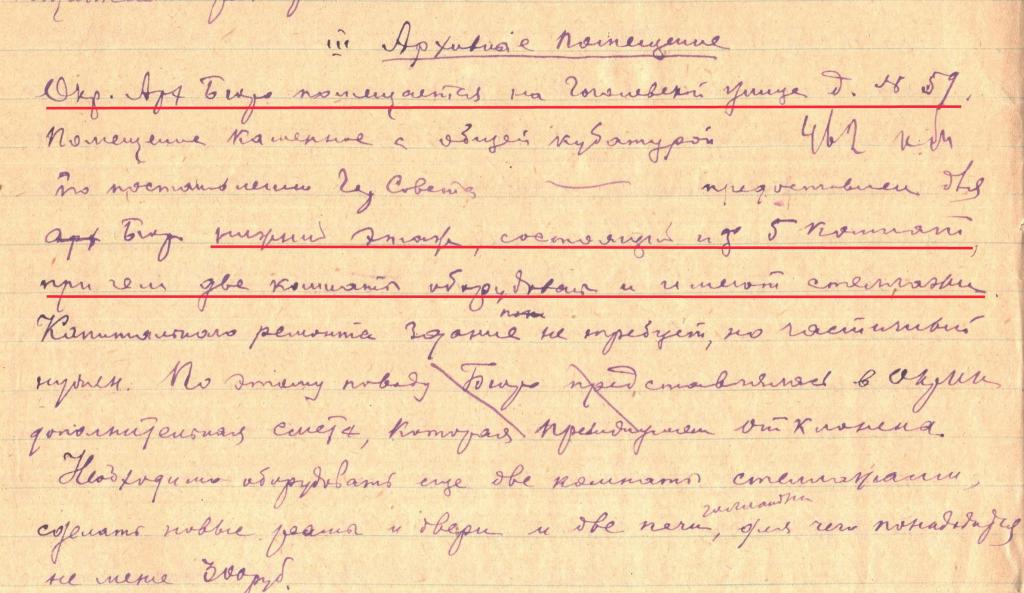 III Архивное помещение
Окр. Арх Бюро помещается на Гоголевской улице д. № 59.
Помещение каменное с общей кубатурой 462 кбм
По постановлению Гор Совета — предоставлен для
арх Бюро нижний этаж, состоящий из 5 комнат,
при чем две комнаты оборудованы и имеют стеллажи.
Капитального ремонта здание пока не требует, но частичный
нужен. По этому поводу Бюро представлялась в Окрик
дополнительная смета, которая президиумом отклонена
Необходимо оборудовать еще две комнаты стеллажами,
сделать новые рамы и двери и две печи голландки, для чего понадобится
не мене 300 руб.